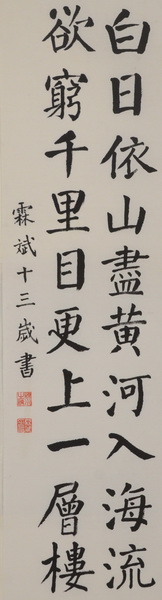 白日依山盡黃河入海流
欲窮千里目更上一層樓
霖斌十三歲書